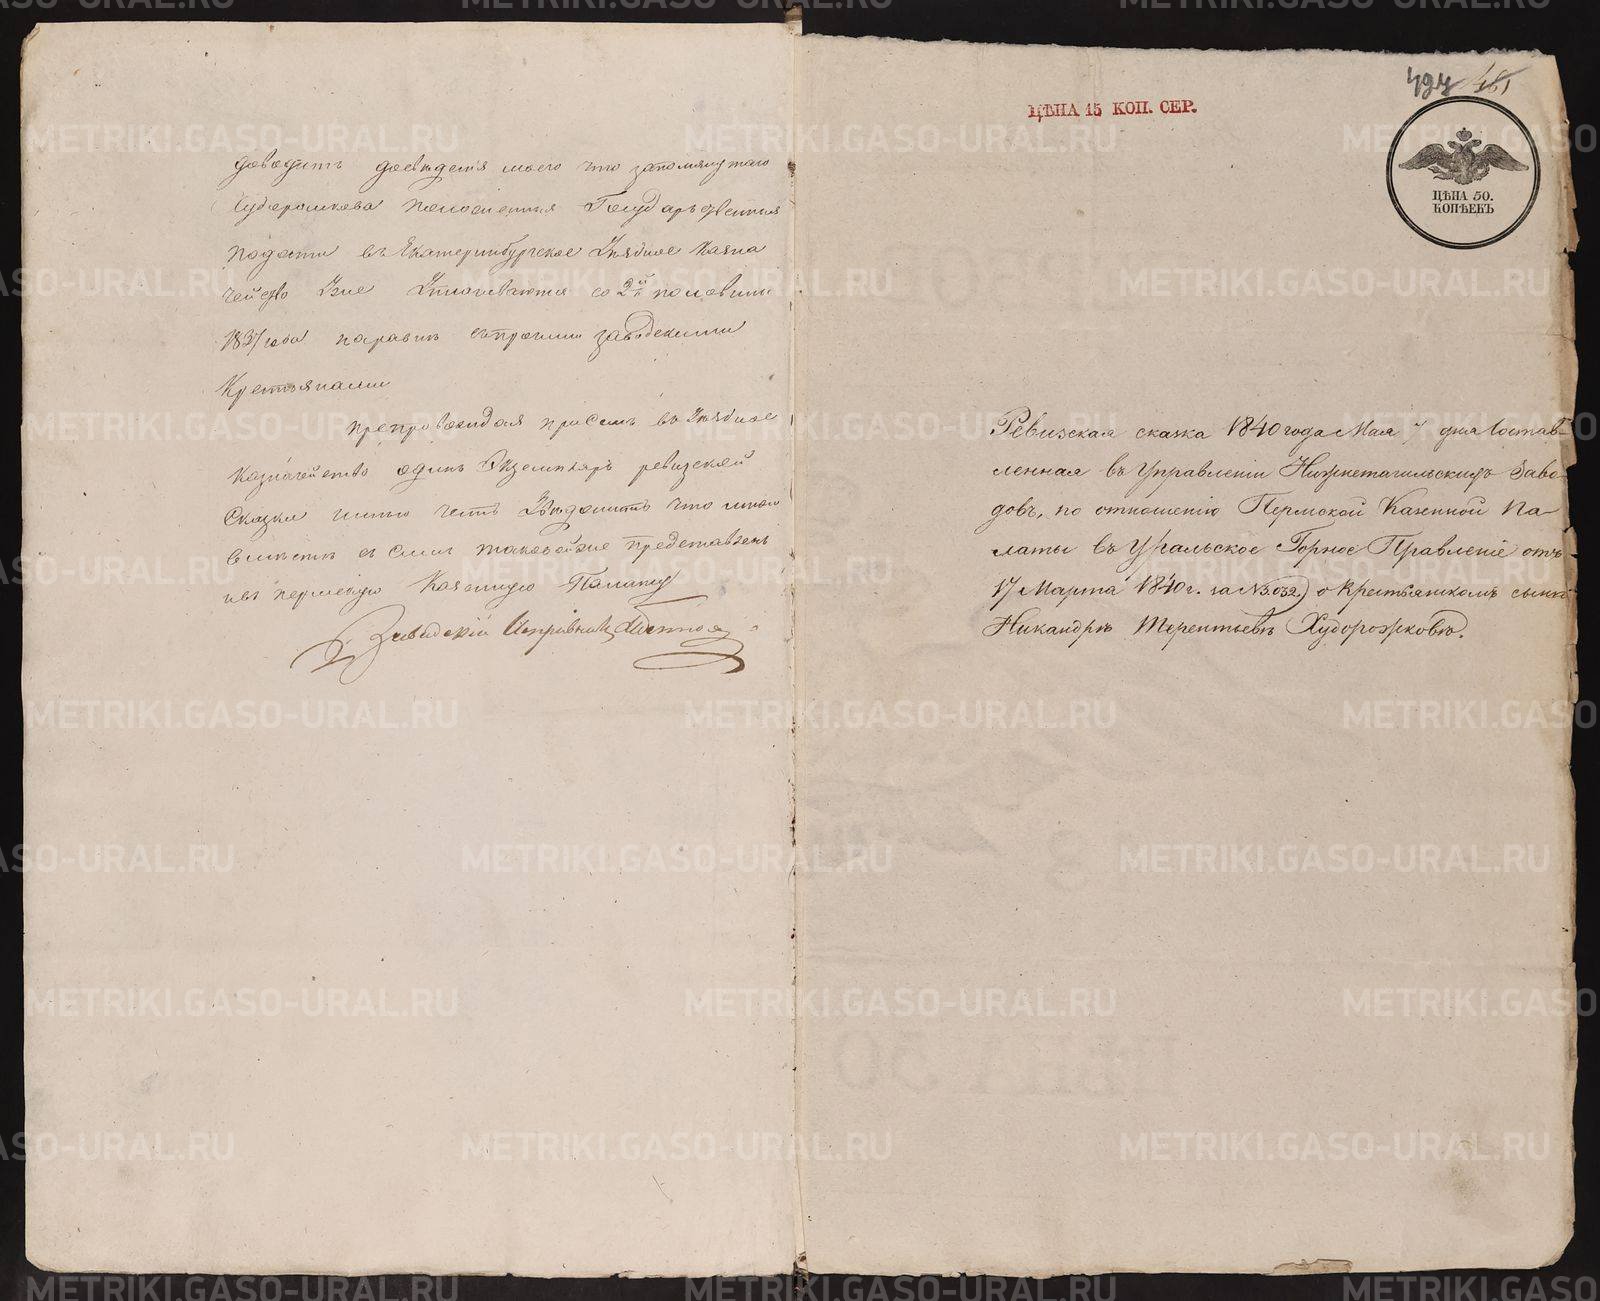 доводитъ досвѣденія моего что запомянутаго
Худорошкова положенныя Государственныя
подати въ Екатеринбургское Уѣздное Казна
чейство уже уплачиваются со 2й половины
1837 года наравнѣ съпрочими заводскими
Крестьянами
препровождая присемъ въ Уѣздное
Казначейство одинъ Экземпляръ ревизской
Сказки имѣю честь Увѣдомить что мною
вмѣстѣ съ симъ таковойже представленъ
ивъ пермскую Казенную Палату
Заводскій Исправникъ
ЦѢНА 15 КОП. СЕР.
497 481
ЦѢНА 50.
КОПѢЕКЪ
Ревизская сказка 1840 года Мая 7 дня Состав-
ленная въ Управленіи Нижнетагильскихъ Заво-
довъ, по отношенію Пермской Казенной Па-
латы въ Уральское Горное Правленіе отъ
17 Марта 1840 г. за №3.032.) о крестьянскомъ сынѣ
Никандрѣ Терентьевѣ Худорожковѣ.
METRIKI.GASO-URAL.RU